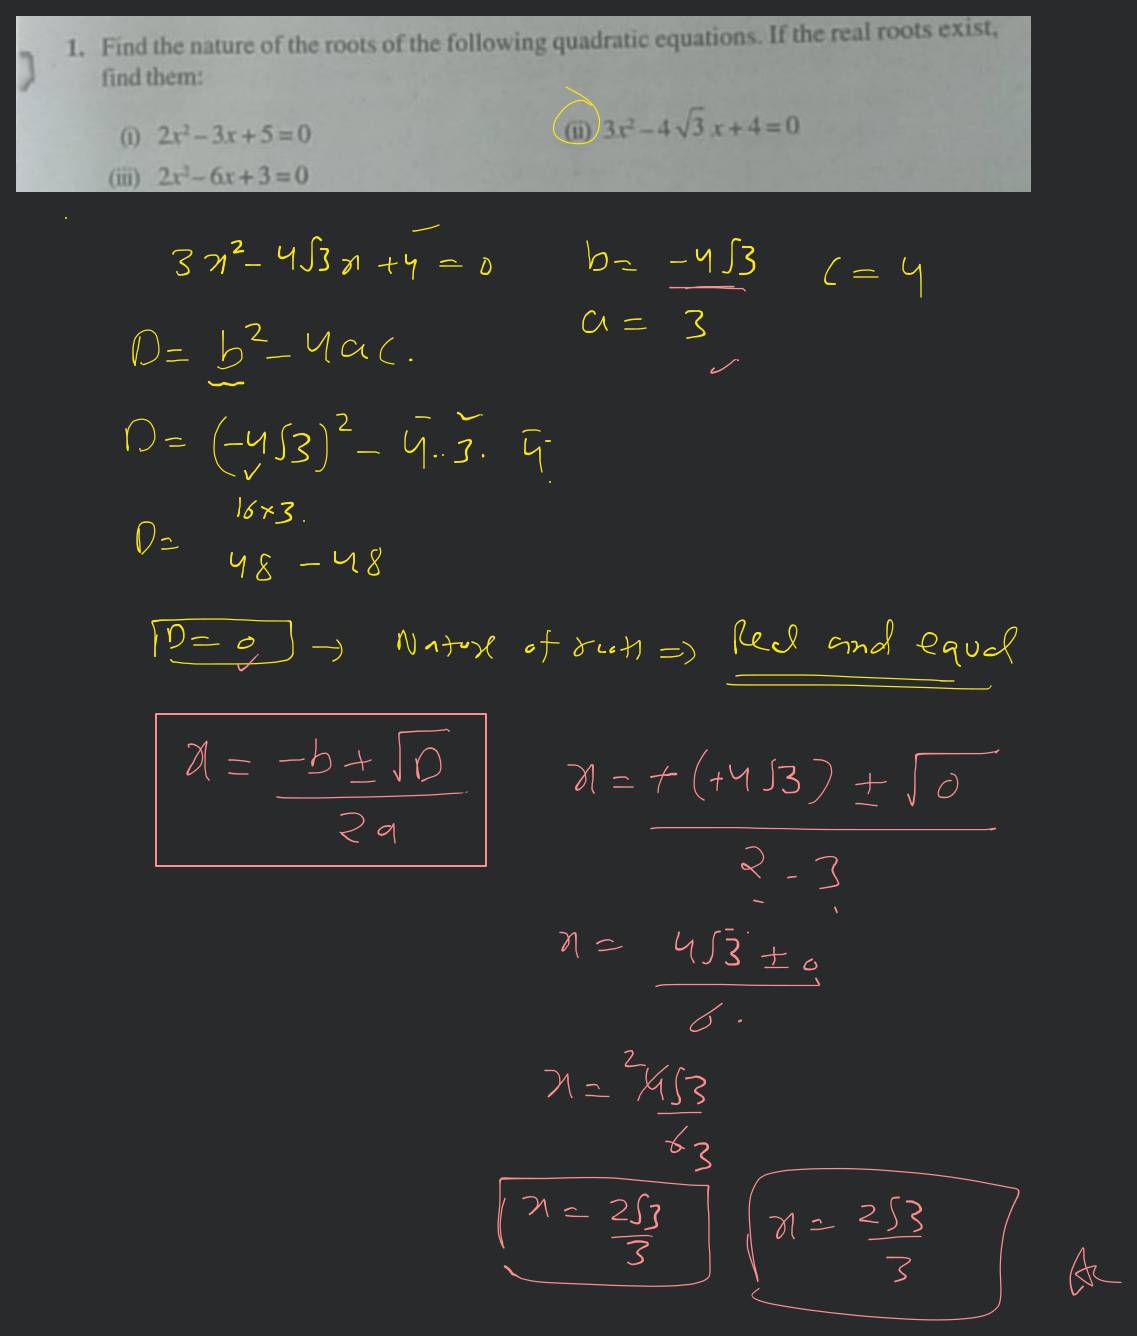 1. Find the nature of the roots of the following quadratic equations. If the real roots exist,
find them:
(i) 2x² – 3x + 5 = 0 (ii) 3x² – 4√3 x + 4 = 0
(iii) 2x² – 6x + 3 = 0
3x² – 4√3x + 4 = 0 b = -4√3 c = 4
a = 3
D = b² – 4ac.
D = (-4√3)² – 4.3.4
16×3.
D = 48 – 48
D = 0 → Nature of roots ⇒ Real and equal
x = (-b ± √D)/2a
x = +(+4√3) ± √0 / 2.3
x = 4√3 ± 0 / 6.
x = 2 4√3 / 6 3
x = 2√3/3 x = 2√3/3